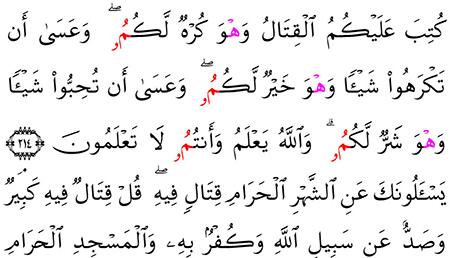 كُتِبَ عَلَيْكُمُ ٱلْقِتَالُ وَهْوَ كُرْهٌ لَّكُمُۥ ۖ وَعَسَىٰٓ أَن
تَكْرَهُوا۟ شَيْـًٔا وَهْوَ خَيْرٌ لَّكُمُۥ ۖ وَعَسَىٰٓ أَن تُحِبُّوا۟ شَيْـًٔا
وَهْوَ شَرٌّ لَّكُمُۥ ۗ وَٱللَّهُ يَعْلَمُ وَأَنتُمُۥ لَا تَعْلَمُونَ ﴿٢١٤﴾
يَسْـَٔلُونَكَ عَنِ ٱلشَّهْرِ ٱلْحَرَامِ قِتَالٍ فِيهِ ۖ قُلْ قِتَالٌ فِيهِ كَبِيرٌ ۚ
وَصَدٌّ عَن سَبِيلِ ٱللَّهِ وَكُفْرٌۢ بِهِۦ وَٱلْمَسْجِدِ ٱلْحَرَامِ